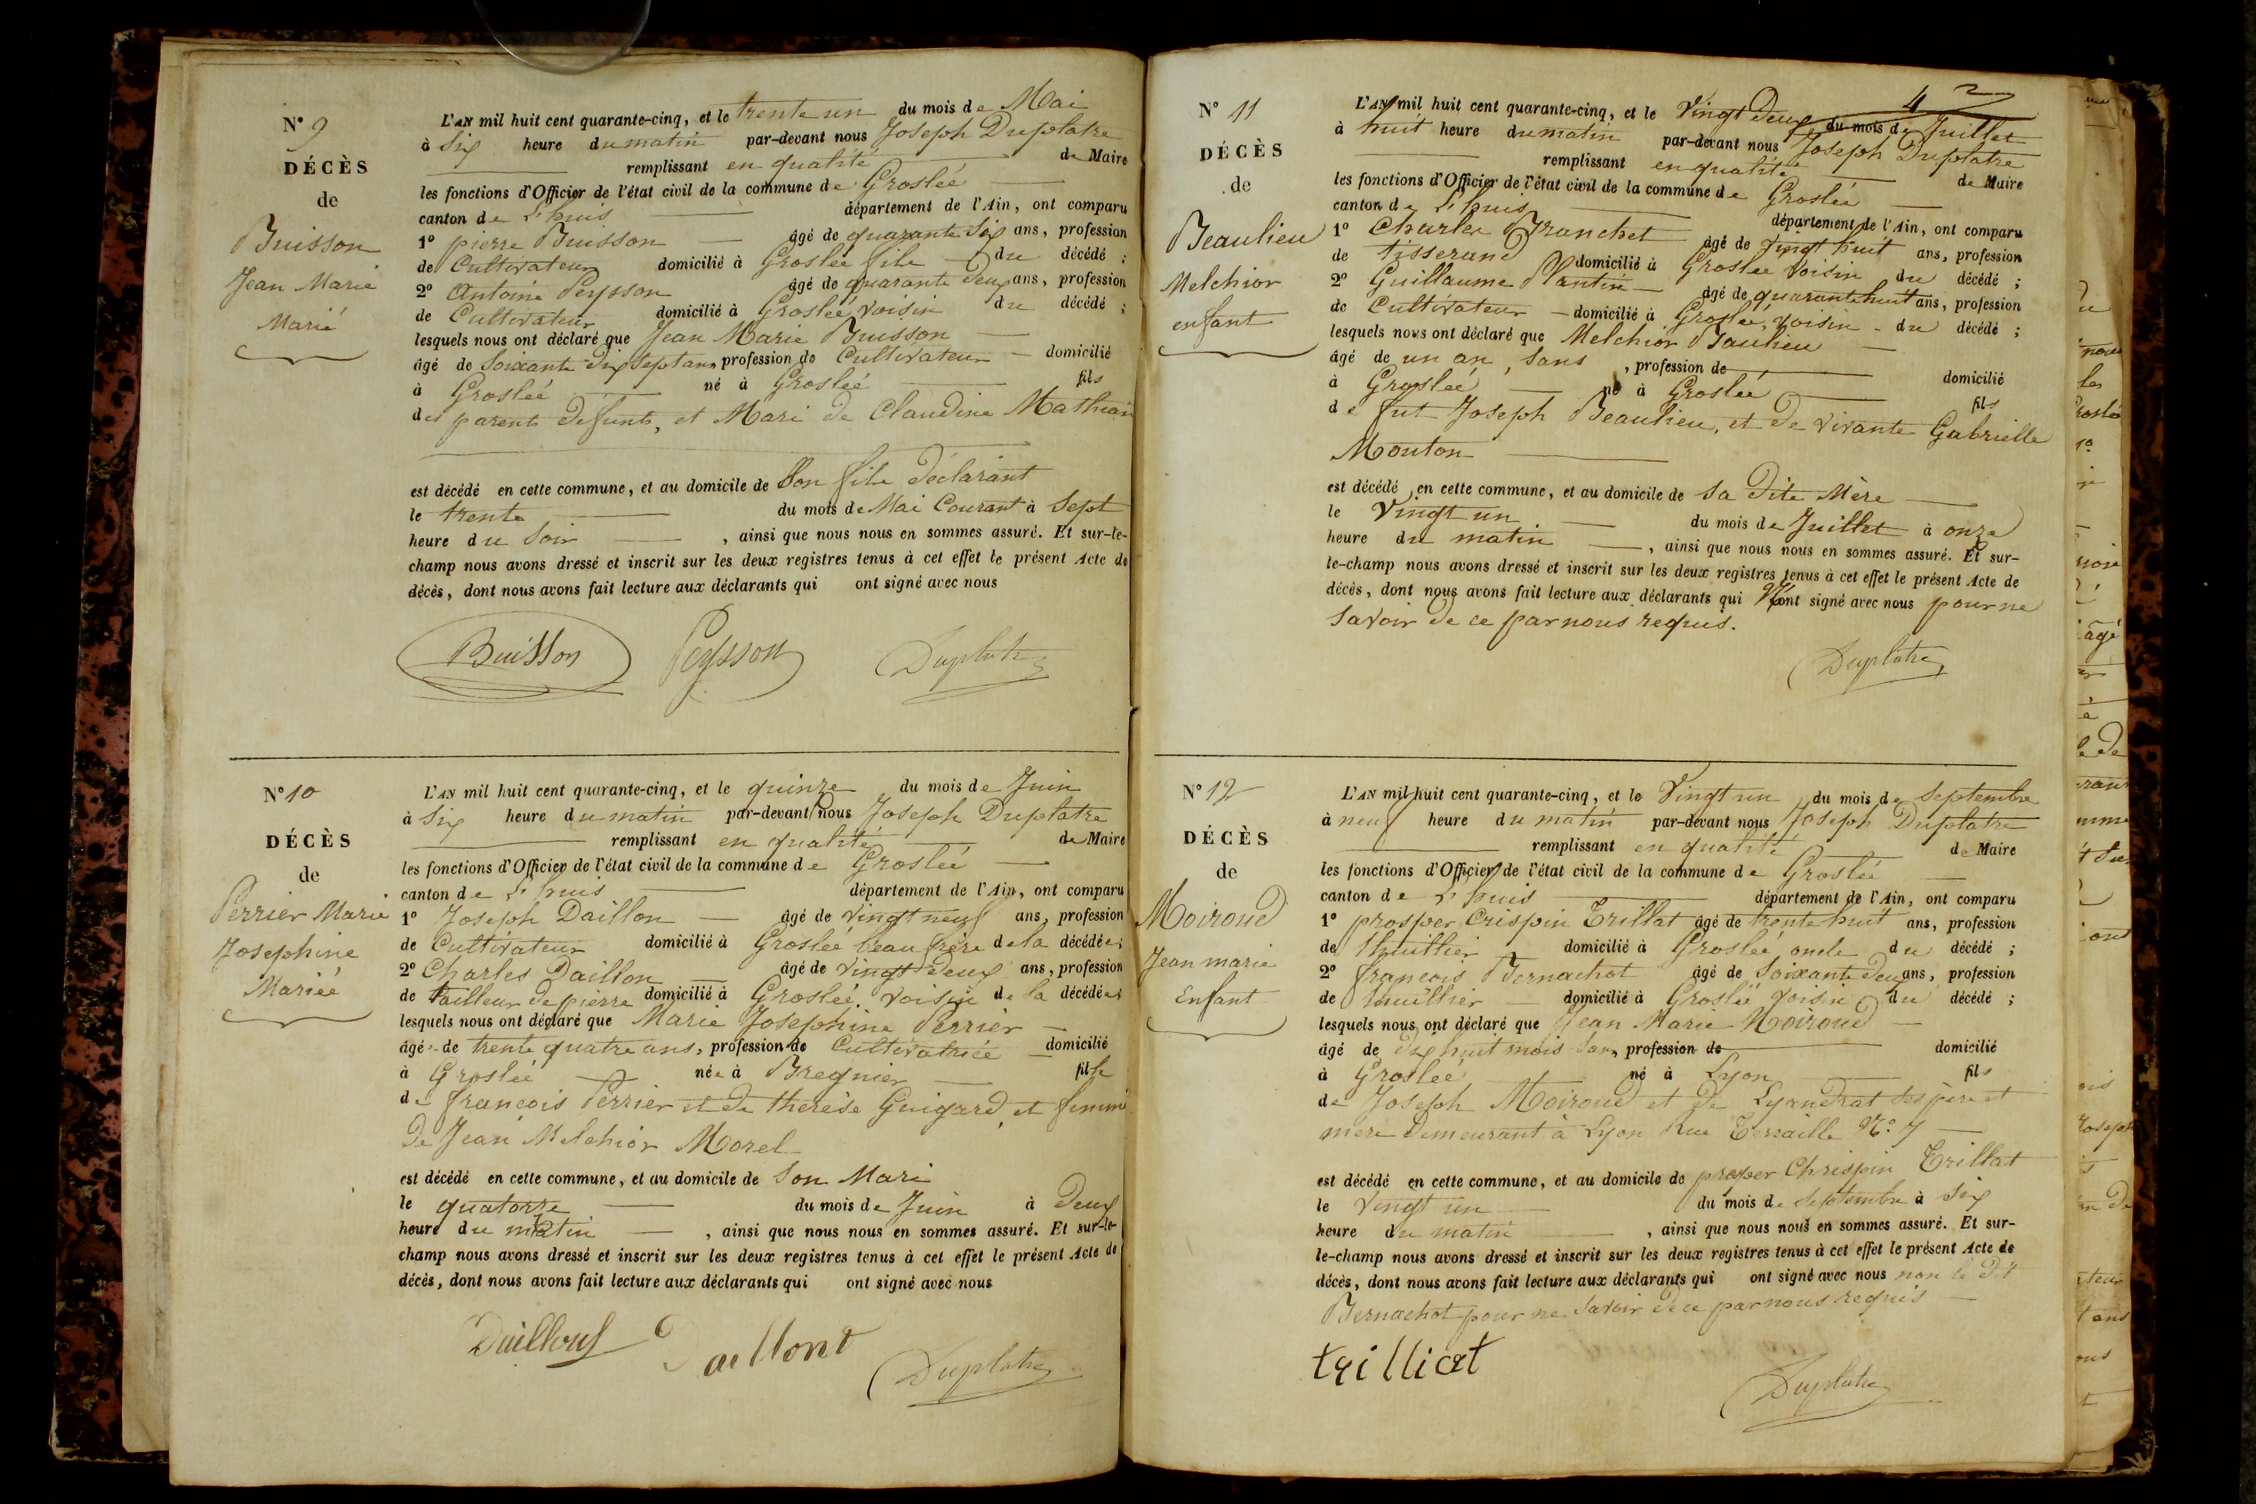 N° 9
DÉCÈS
de
Buisson
Jean Marie
Marié
L'AN mil huit cent quarante-cinq, et le trente un du mois de Mai
à Six heure du matin par-devant nous Joseph Duplatre
remplissant en qualité de Maire
les fonctions d'Officier de l'état civil de la commune de Groslée
canton de L'huis département de l'Ain, ont comparu
1° pierre Buisson âgé de quarante Six ans, profession
de Cultivateur domicilié à Groslée fils du décédé ;
2° Antoine Peysson âgé de quarante deux ans, profession
de Cultivateur domicilié à Groslée voisin du décédé ;
lesquels nous ont déclaré que Jean Marie Buisson
âgé de Soixante dix Sept ans, profession de Cultivateur domicilié
à Groslée né à Groslée fils
des parents defunts, et Mari de Claudine
est décédé en cette commune, et au domicile de Son fils déclarant
le trente du mois de Mai Courant à Sept
heure du Soir , ainsi que nous nous en sommes assuré. Et sur-le-
champ nous avons dressé et inscrit sur les deux registres tenus à cet effet le présent Acte de
décès, dont nous avons fait lecture aux déclarants qui ont signé avec nous
Buisson Peysson Duplatre
N° 10
DÉCÈS
de
Perrier Marie
Josephine
Mariée
L'AN mil huit cent quarante-cinq, et le quinze du mois de Juin
à Six heure du matin par-devant nous Joseph Duplatre
remplissant en qualité de Maire
les fonctions d'Officier de l'état civil de la commune de Groslée
canton de L'huis département de l'Ain, ont comparu
1° Joseph Daillon âgé de vingt neuf ans, profession
de Cultivateur domicilié à Groslée beau frère de la décédée ;
2° Charles Daillon âgé de vingt deux ans, profession
de tailleur de pierre domicilié à Groslée voisin de la décédée ;
lesquels nous ont déclaré que Marie Josephine Perrier
âgé de trente quatre ans, profession de Cultivatrice domicilié
à Groslée née à Bregnier fille
de francois Perrier et de therèse Guigard, et femme
De Jean Melchior Morel
est décédé en cette commune, et au domicile de Son Mari
le quatorze du mois de Juin à Deux
heure du matin , ainsi que nous nous en sommes assuré. Et sur-le-
champ nous avons dressé et inscrit sur les deux registres tenus à cet effet le présent Acte de
décès, dont nous avons fait lecture aux déclarants qui ont signé avec nous
Daillont Duplatre
4
N° 11
DÉCÈS
de
Beaulieu
Melchior
enfant
L'AN mil huit cent quarante-cinq, et le Vingt Deux du mois de Juillet
à huit heure du matin par-devant nous Joseph Duplatre
remplissant en qualité de Maire
les fonctions d'Officier de l'état civil de la commune de Groslée
canton de L'huis département de l'Ain, ont comparu
1° Charles Branchet âgé de vingt huit ans, profession
de tisserand domicilié à Groslée voisin du décédé ;
2° Guillaume Plantin âgé de quarante huit ans, profession
de Cultivateur domicilié à Groslée, voisin du décédé ;
lesquels nous ont déclaré que Melchior Baulieu
âgé de un an, Sans , profession de domicilié
à Groslée né à Groslée fils
de fut Joseph Beaulieu, et de vivante Gabrielle
Mouton
est décédé en cette commune, et au domicile de Sa Dite Mère
le Vingt un du mois de Juillet à onze
heure du matin , ainsi que nous nous en sommes assuré. Et sur-
le-champ nous avons dressé et inscrit sur les deux registres tenus à cet effet le présent Acte de
décès, dont nous avons fait lecture aux déclarants qui N'ont signé avec nous pour ne
Savoir de ce par nous requis.
Duplatre
N° 12
DÉCÈS
de
Moiroud
Jean marie
Enfant
L'AN mil huit cent quarante-cinq, et le Vingt un du mois de Septembre
à neuf heure du matin par-devant nous Joseph Duplatre
remplissant en qualité de Maire
les fonctions d'Officier de l'état civil de la commune de Groslée
canton de L'huis département de l'Ain, ont comparu
1° prosper Crispin Trillat âgé de trente huit ans, profession
de thuillier domicilié à Groslée oncle du décédé ;
2° francois Bernachot âgé de Soixante deux ans, profession
de thuillier domicilié à Groslée voisin du décédé ;
lesquels nous ont déclaré que Jean Marie Moiroud
âgé de dix huit mois Sans, profession de domicilié
à Groslée né à Lyon fils
de Joseph Moiroud et de Lyandrat Ses père et
mère Demeurant à Lyon Rue Terraille N° 7
est décédé en cette commune, et au domicile de prosper Chrispin Trillat
le Vingt un du mois de Septembre à Six
heure du matin , ainsi que nous nous en sommes assuré. Et sur-
le-champ nous avons dressé et inscrit sur les deux registres tenus à cet effet le présent Acte de
décès, dont nous avons fait lecture aux déclarants qui ont signé avec nous non le Dit
Bernachot pour ne Savoir de ce par nous requis
trilliat Duplatre